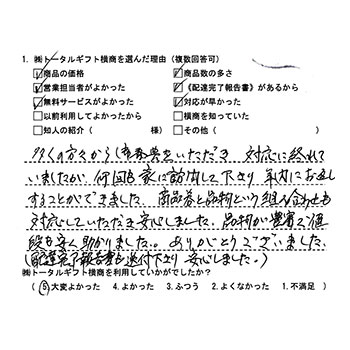 1. ㈱トータルギフト横商を選んだ理由（複数回答可）
☑商品の価格 ☑商品数の多さ
☑営業担当者がよかった ☑《配達完了報告書》があるから
☑無料サービスがよかった ☑対応が早かった
☐以前利用してよかったから ☐横商を知っていた
☐知人の紹介（ 様） ☐その他（ ）
多くの方々から香典をいただき 対応に終れて
いましたが、何回も家に訪問して下さり 年内にお返し
することができました。商品券と品物という組み合わせも
対応していただき安心しました。品物が豊富で値
段も安く助かりました。ありがとうございました。
(配達完了報告書も送付下さり安心しました。)
㈱トータルギフト横商を利用していかがでしたか？
（⑤大変よかった 4.よかった 3.ふつう 2.よくなかった 1.不満足 ）